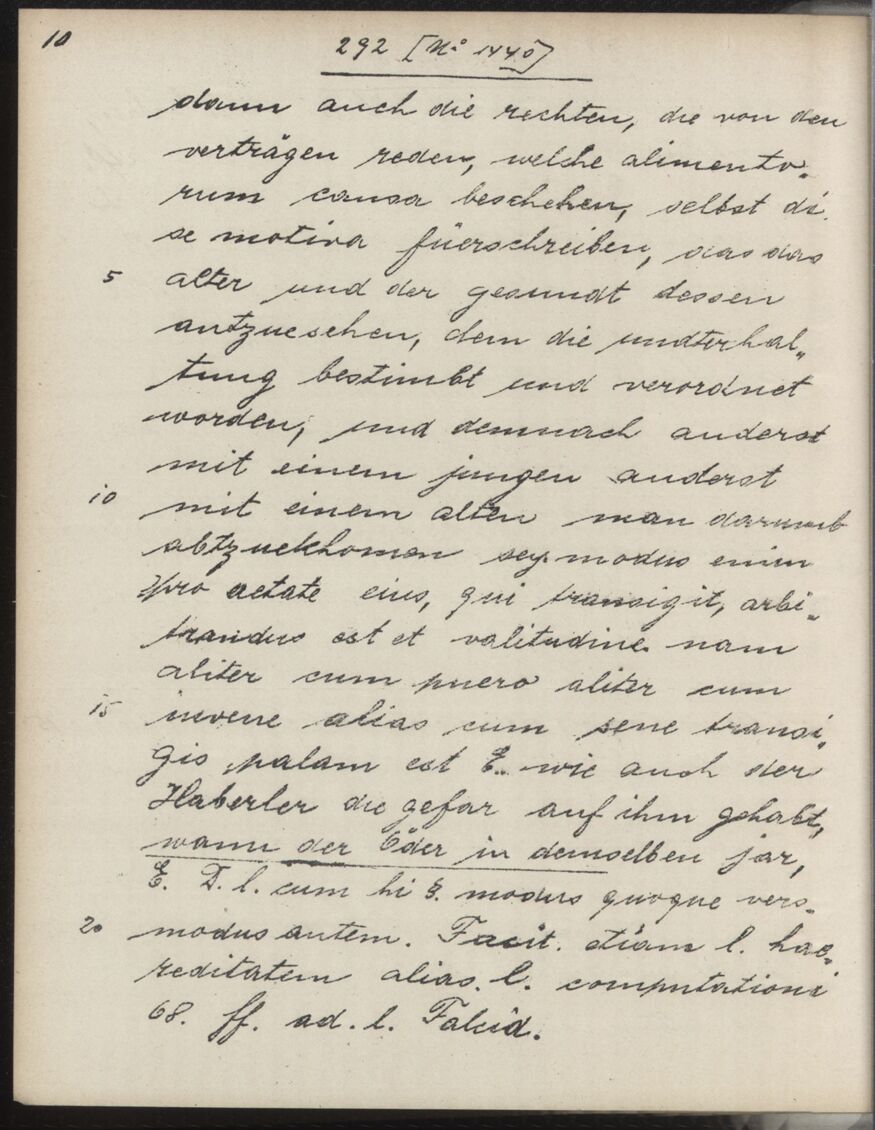 10
292 [No 1440]
dann auch die rechten, die von den
verträgen reden, welche alimento„
rum causa beschehen, selbst di„
se motiva füerschreiben, das das
5 alter und der gesundt dessen
antzuesehen, dem die undterhal„
tung bestimbt und verordnet
worden, und demnach anderst
mit einem jungen anderst
10 mit einem alten man darumb
abtzuekhomen sey. modus enim
pro aetate eius, qui transigit, arbi„
trandus est et valitudine. nam
aliter cum puero aliter cum
15 iuvene alias cum sene transi„
gis palam est E. wie auch der
Haberler die gefar auf ihm gehabt,
wann der Öder in demselben jar,
E. D. l. cum hi §. modus quoque vers.
20 modus autem. Facit. etiam l. hae„
reditatem alias. l. computationi
68. ff. ad. l. Falcid.